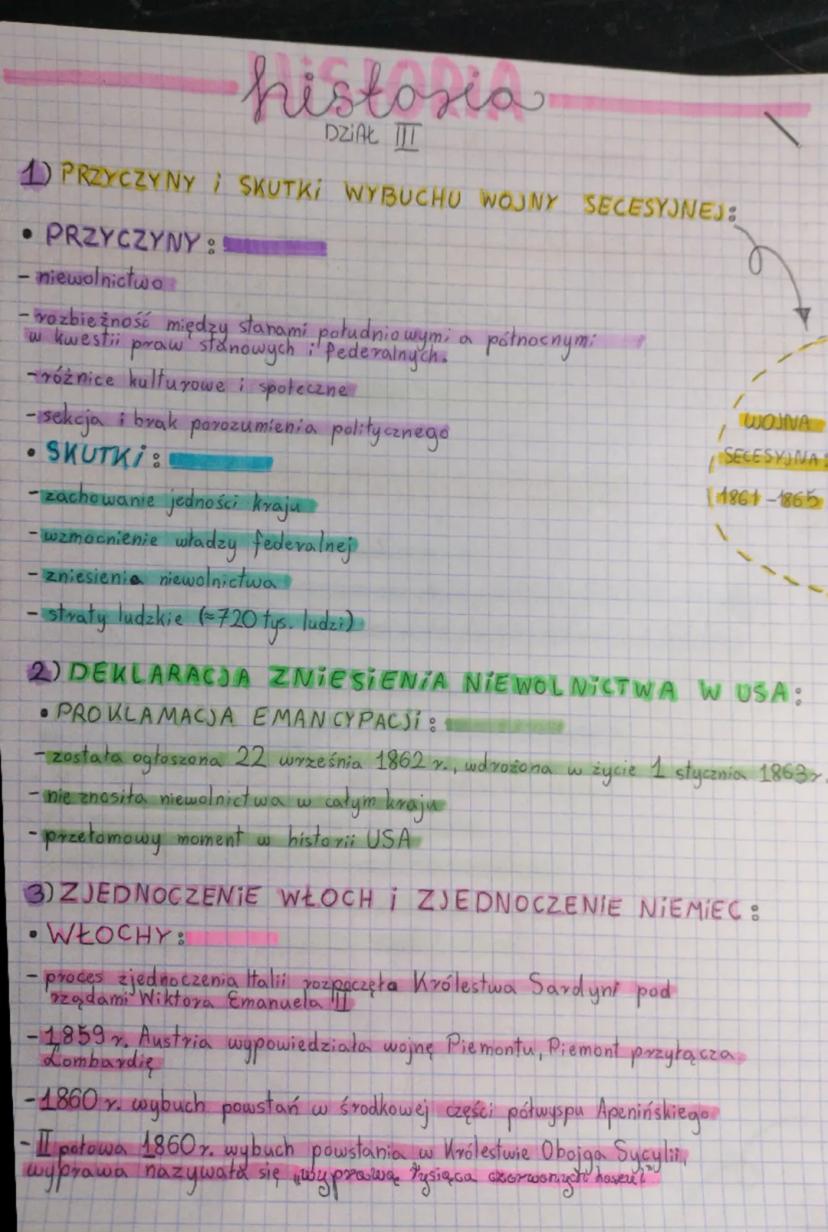 HISTORIA
historia
DZIAŁ III
1) PRZYCZYNY i SKUTKI WYBUCHU WOJNY SECESYJNEJ:
• PRZYCZYNY:
- niewolnictwo
- rozbieżność między stanami południowymi a północnymi
w kwestii praw stanowych i federalnych.
- różnice kulturowe i społeczne
- sekcja i brak porozumienia politycznego
WOJNA
SECESYJNA:
1861-1865
• SKUTKI:
- zachowanie jedności kraju
- wzmocnienie władzy federalnej
- zniesienia niewolnictwa
- straty ludzkie (≈720 tys. ludzi)
2) DEKLARACJA ZNIESIENIA NIEWOLNICTWA W USA:
• PROKLAMACJA EMANCYPACJI:
- została ogłoszona 22 września 1862 r., wdrożona w życie 1 stycznia 1863 r.
- nie znosiła niewolnictwa w całym kraju
- przełomowy moment w historii USA
3) ZJEDNOCZENIE WŁOCH i ZJEDNOCZENIE NIEMIEC:
• WŁOCHY:
- proces zjednoczenia Italii rozpoczęła Królestwa Sardyni pod
rządami Wiktora Emanuela II
- 1859 r. Austria wypowiedziała wojnę Piemontu, Piemont przyłącza
Lombardię
- 1860 r. wybuch powstań w środkowej części półwyspu Apenińskiego
- II połowa 1860 r. wybuch powstania w Królestwie Obojga Sycylii,
wyprawa nazywała się „wyprawą tysiąca czerwonych koszul"